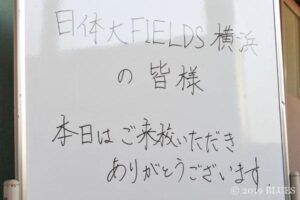 日体大FIELDS横浜
の皆様
本日はご来校いただき
ありがとうございます.
© 2019 BLUES